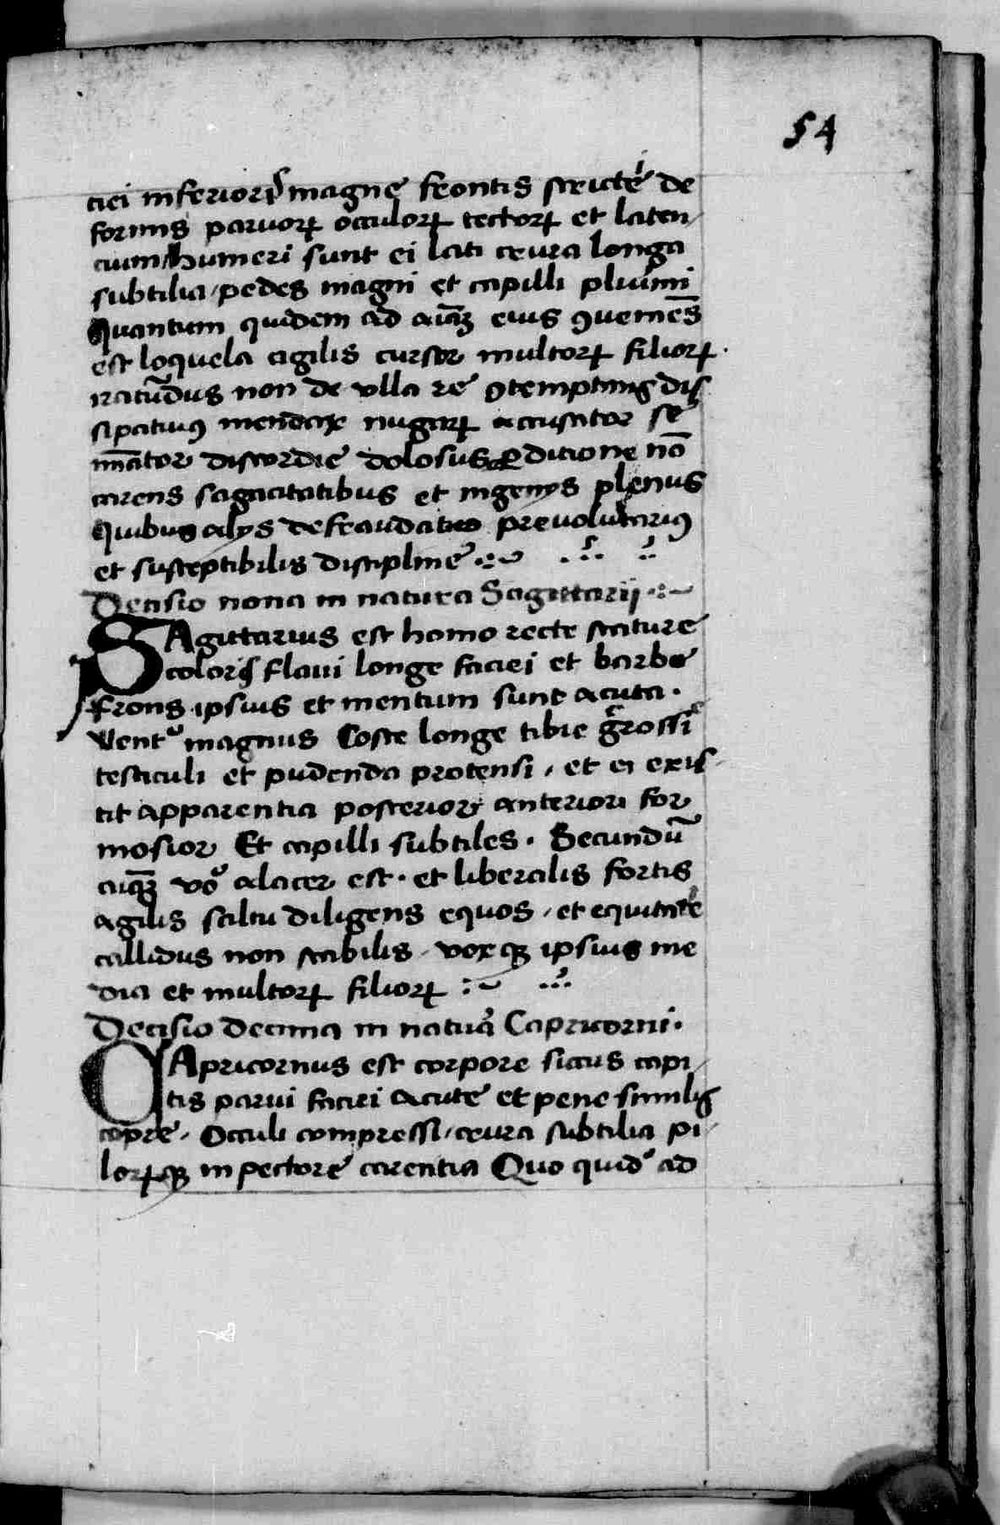 54
ciei inferioris magne frontis stricte de
formis paruoꝝ occuloꝝ tectoꝝ et laten
cium humeri sunt ei lati crura longa
subtilia / pedes magni et capilli plurimi
Quantum quidem ad aiãꝫ eius ꝯueniẽs
est loquela agilis cursor multoꝝ filioꝝ.
iracũdus non de vlla re ꝯtemptiuꝰ dis
sipatiuꝰ mendax nugaꝝ accusator se
mĩator discordie dolosus ꝑditione nõ
carens sagacitatibus et ingenijs plenus
Quibus alijs defraudatio preuolutariꝰ
et susceptibilis discipline
Decisio nona in natura Sagittarij
SAgittarius est homo recte stature
coloris flaui longe faciei et barbe
frons ipsius et mentum sunt acuta.
Ventꝰ magnus Coste longe tibie grossi
testiculi et pudenda protensi, et ei exis
tit apparentia posterior anteriori for
mosior Et capilli subtiles. Secundũ
aiãꝫ vo alacer est. et liberalis fortis
agilis saltu diligens equos, et equitate
callidus non stabilis, voxqꝫ ipsius me
dia et multoꝝ filioꝝ
Decisio decima in natura Capricorni.
CApricornus est corpore siccus capi
tis parui faciei acute et pene similis
capre. Occuli compressi, crura subtilia pi
loꝝqꝫ in pectore carentia Quo quidẽ ad